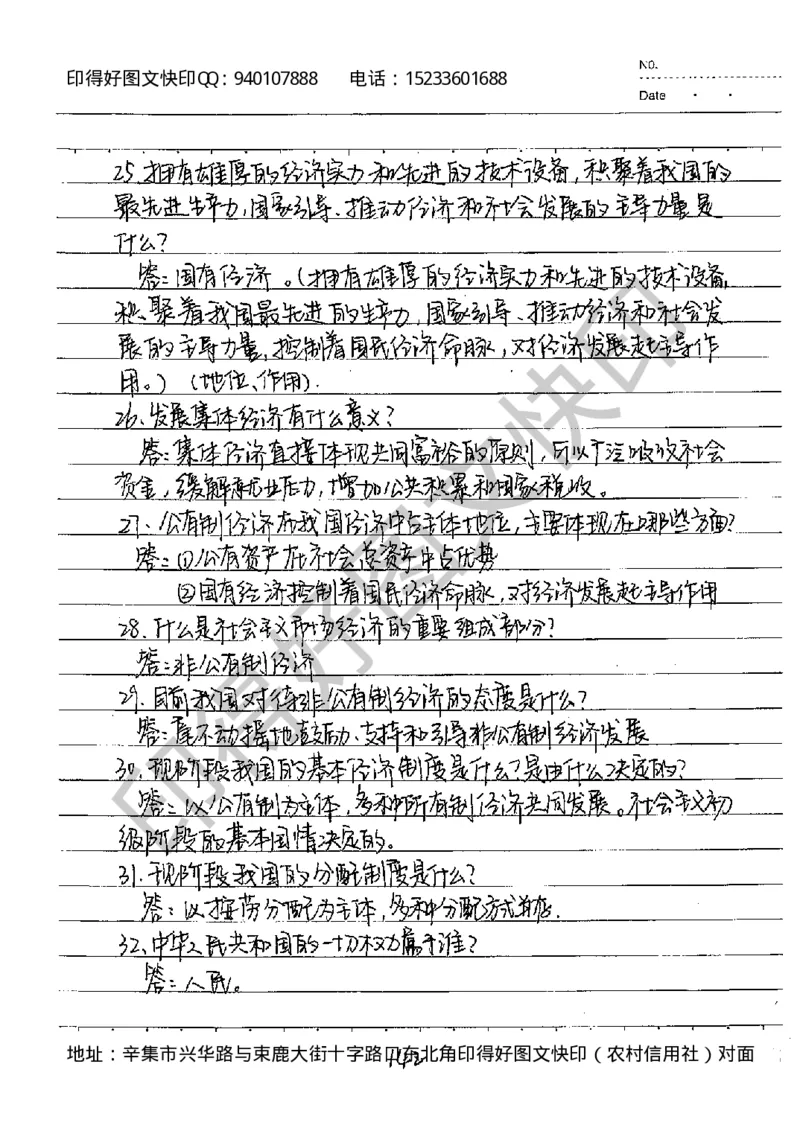 印得好图文快印QQ：940107888 电话：15233601688
NO.
Date
25.拥有雄厚的经济实力和先进的技术设备，积聚着我国的
最先进生产力，国家引导、推动经济和社会发展的主导力量是
什么？
答：国有经济。（拥有雄厚的经济实力和先进的技术设备，
积聚着我国最先进的生产力，国家引导、推动经济和社会发
展的主导力量，控制着国民经济命脉，对经济发展起主导作
用。）（地位、作用）.
26、发展集体经济有什么意义？
答：集体经济直接体现共同富裕的原则，可以广泛吸收社会
资金，缓解就业压力，增加公共积累和国家税收。
27、公有制经济在我国经济中占主体地位，主要体现在哪些方面？
答：①公有资产在社会总资产中占优势
②国有经济控制着国民经济命脉，对经济发展起主导作用
28.什么是社会主义市场经济的重要组成部分？
答：非公有制经济
29.目前我国对待非公有制经济的态度是什么？
答：毫不动摇地鼓励、支持和引导非公有制经济发展
30.现阶段我国的基本经济制度是什么？是由什么决定的？
答：以公有制为主体，多种所有制经济共同发展。社会主义初
级阶段的基本国情决定的。
31.现阶段我国的分配制度是什么？
答：以按劳分配为主体，多种分配方式并存.
32、中华人民共和国的一切权力属于谁？
答：人民。
地址：辛集市兴华路与束鹿大街十字路口东北角印得好图文快印（农村信用社）对面
印得好图文快印